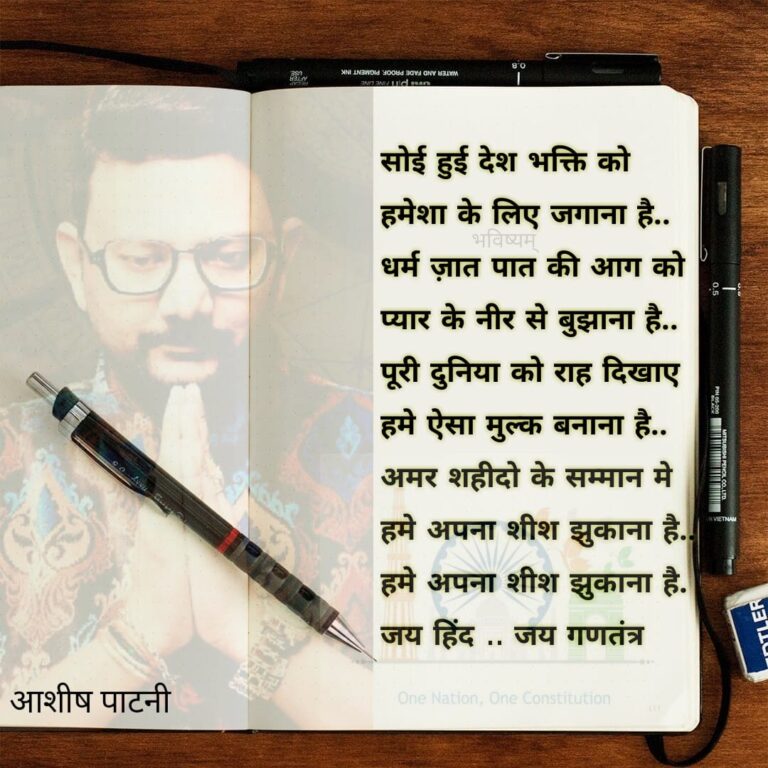 WATER AND FADE PROOF, PIGMENT INK
0.8
सोई हुई देश भक्ति को
हमेशा के लिए जगाना है..
भविष्यम्
धर्म ज़ात पात की आग को
प्यार के नीर से बुझाना है..
पूरी दुनिया को राह दिखाए
हमे ऐसा मुल्क बनाना है..
अमर शहीदो के सम्मान मे
हमे अपना शीश झुकाना है..
हमे अपना शीश झुकाना है.
जय हिंद .. जय गणतंत्र
One Nation, One Constitution
आशीष पाटनी
0.5
PIN 05-200
BLACK
MITSUBISHI PENCIL CO., LTD.
VIETNAM